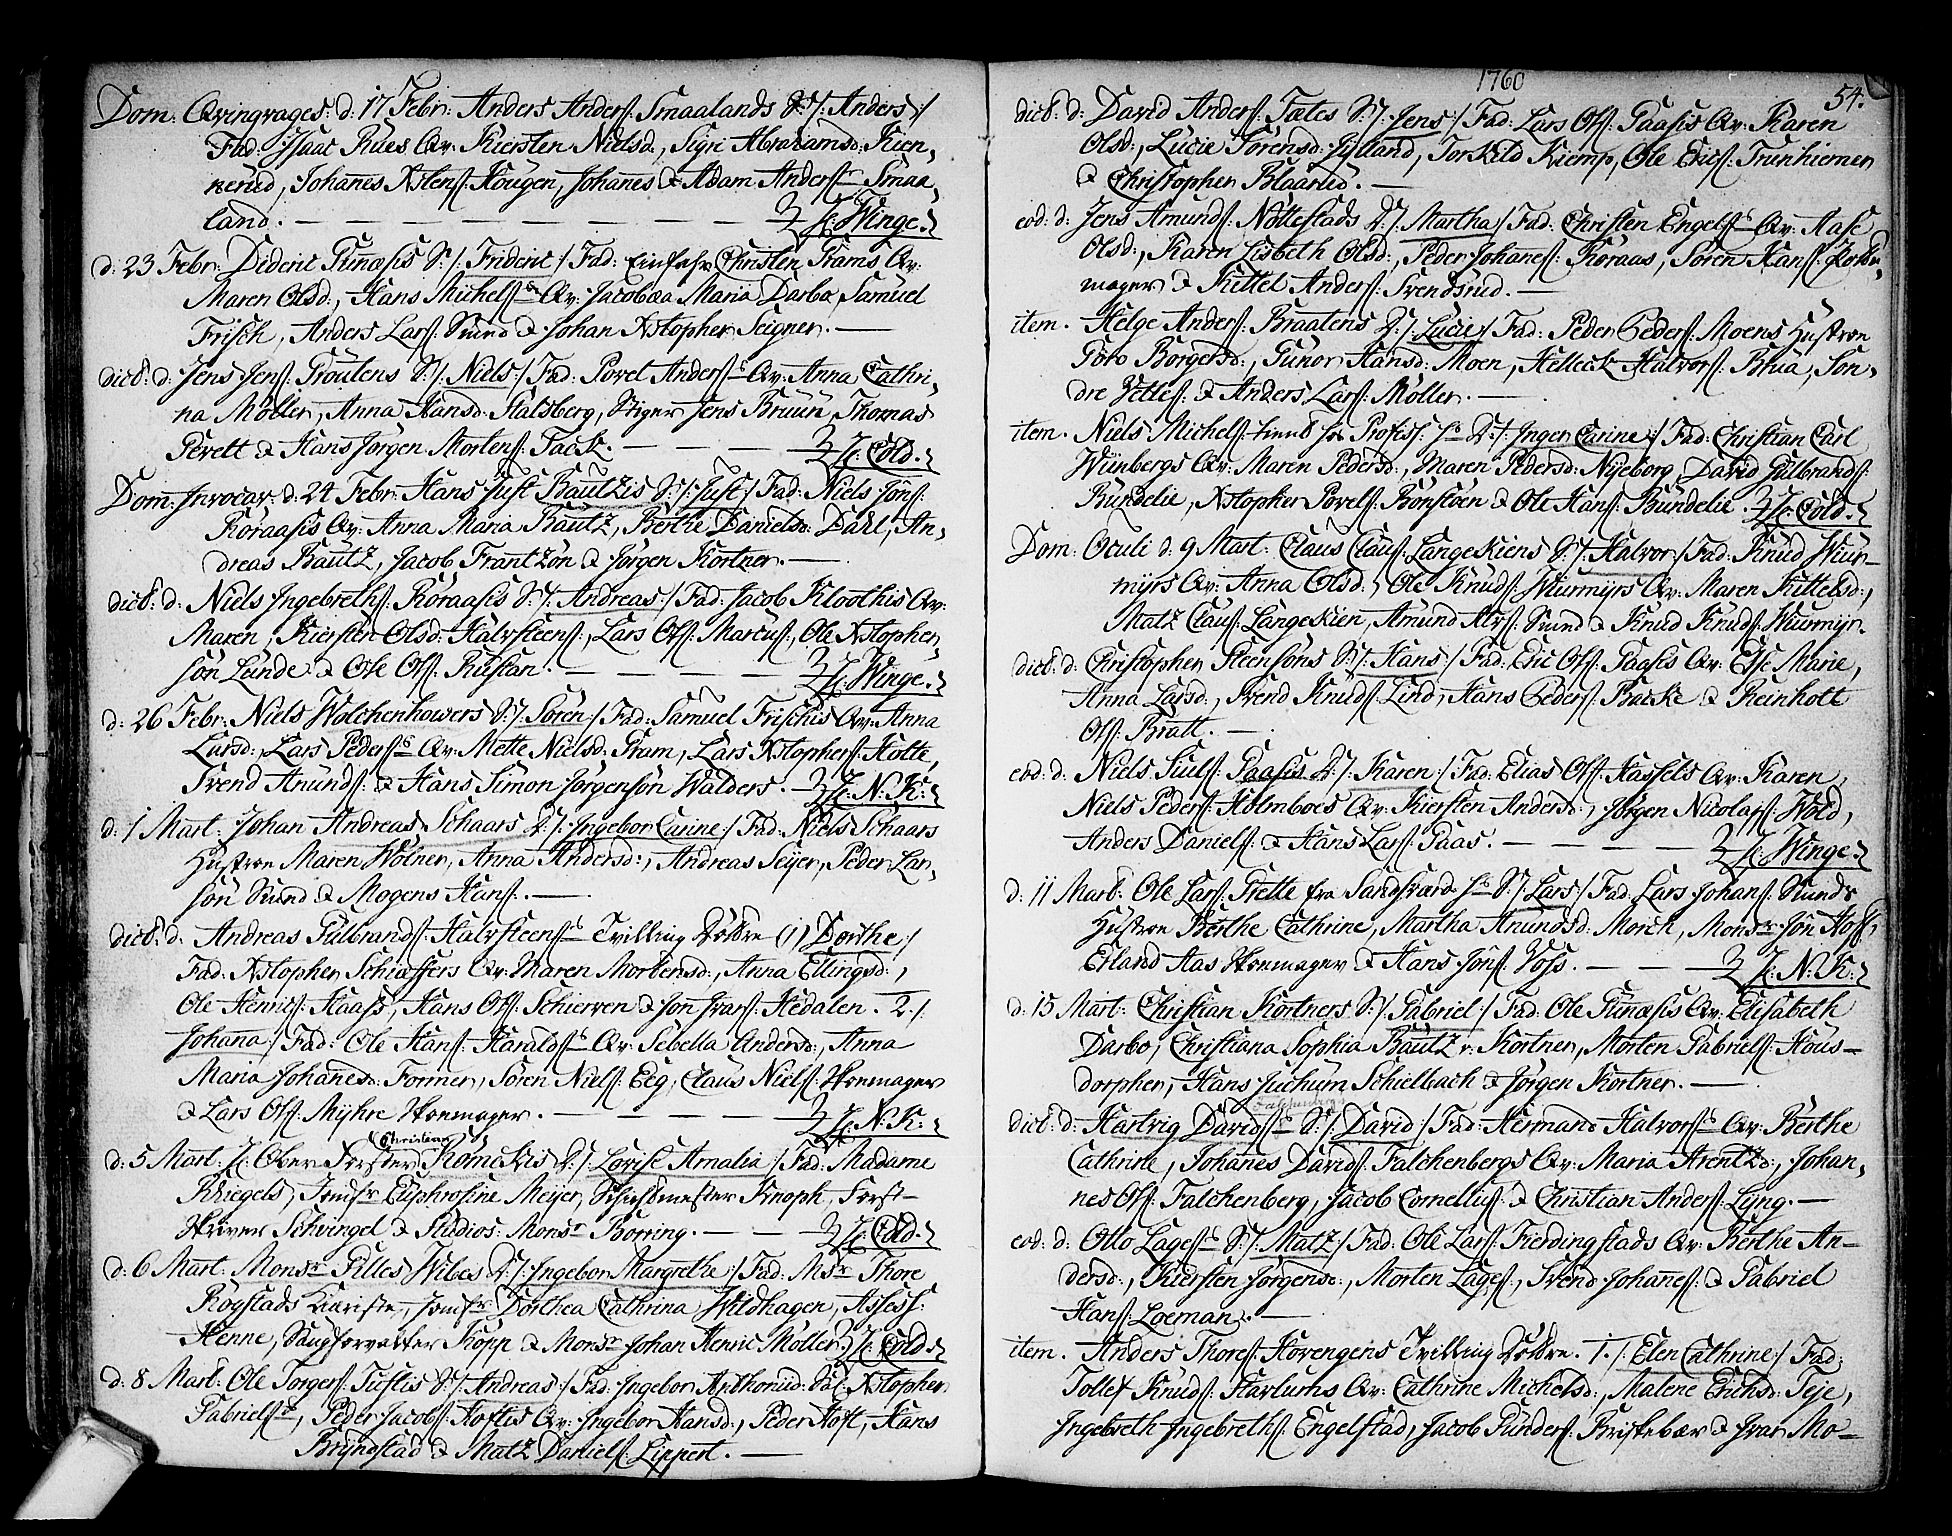 Dom: Qvinqvages: d: 17 Febr: Anders Anders: Smaalands S: /: Anders :/
Fad: Isaac Rues Qv: Kiersten Nielsd:, Sigri Abrahamsd: Kien,
nerud, Johanes Xstens: Hougen, Johanes & Adam Anders: Smaa,
land. — — — — — — H: Winge.
d: 23 Febr: Dideric Gunæsis S: /: Frideric :/ Fad: Christen Frams Qv:
Maren Olsd:, Hans Michels: Qv: Jacobæa Maria Darbo, Samuel
Frisch, Anders Lars: Sund & Johan Xstopher Seigner. —
dict: d: Jens Jens: Groutens S: /: Niels :/ Fad: Povel Anders: Qv: Anna Cathri,
na Møller, Anna Hansd: Stalsberg, Stiger Jens Bruun, Thomas
Perett & Hans Jørgen Mortens: Fack. — — H: Cold.
Dom: Invocav: d: 24 Febr: Hans Just Bautzis S: /: Just :/ Fad: Niels Jøns:
Koraasis Qv: Anna Maria Bautz, Berthe Danielsd: Dahl, An,
dreas Bautz, Jacob Frantzøn & Jørgen Kortner. —
dict: d: Niels Ingebreths: Koraasis S: /: Andreas :/ Fad: Jacob Kloothis Qv:
Maren, Kiersten Olsd: Halvsteens:, Lars Ols: Marcus:, Ole Xstopher,
søn Lunde & Ole Ols: Rustan. — — — H: Winge.
d: 26 Febr: Niels Wolchenhowers S: /: Søren :/ Fad: Samuel Frischis Qv: Anna
Larsd:, Lars Peders: Qv: Mette Nielsd: Fram, Lars Xstophers: Holte,
Svend Amunds: & Hans Simon Jørgensøn Walders. — H: N: K:
d: 1 Mart: Johan Andreas Schaars D: /: Ingebor Carine :/ Fad: Niels Schaars
Hustroe Maren Wølner, Anna Andersd:, Andreas Seijer, Peder Lar,
søn Sund & Mogens Hans:. —
dict: d: Andreas Gulbrands: Halvsteens: Tvilling Døttre (1) Dorthe :/
Fad: Xstopher Schæffers Qv: Maren Mortensd:, Anna Ellingsd:,
Ole Henrics: Haass, Hans Ols: Schierven & Jon Ivars: Hedalen. 2. /:
Johana :/ Fad: Ole Hans: Haralds: Qv: Sebella Andersd:, Anna
Maria Johanesd: Former, Søren Niels: Eeg, Claus Niels: Skomager
& Lars Ols: Myhre Skomager. — — — H: N: K:
Christian
d: 5 Mart: H: Ober Førster Komackis D: /: Lovise Amalia :/ Fad: Madame
Kriegels, Jomfr Euphrosine Meyer, Knoph, Forst-
Skriver Schvingel & Studios: Monsr Borring. — — H: Cold.
d: 6 Mart: Monsr Gilles Wibes D: /: Ingebor Margrethe :/ Fad: Msr Thore
Rogstads Kiæriste, Jomfr Dorthea Cathrina Wildhagen, Assess:
Henne, Kopp & Monsr Johan Henric Møller. H: Cold.
d: 8 Mart: Ole Torgers: Tuftis S: /: Andreas :/ Fad: Ingebor Anthoniid: Xstopher
Gabriels:, Peder Jacobs: Hoftes Qv: Ingebor Hansd:, Peder Hoft, Hans
Bryngstad & Matz Daniels: Lippert. —
1760
54.
dict: d: David Anders: Tætes S: /: Jens :/ Fad: Lars Ols: Gaasis Qv: Karen
Olsd:, Lucie Sørensd: Jylland, Torskild Kiemp, Ole Erics: Trunhiemer
& Christopher Blaarud. —
eod: d: Jens Amunds: Nøttestads D: /: Martha :/ Fad: Christen Engels: Qv: Aase
Olsd:, Karen Lisbeth Olsd:, Peder Johanes: Koraas, Søren Hans:
mager & Kittel Anders: Svendsrud. —
item. Helge Anders: Braatens D: /: Lucie :/ Fad: Peder Peders: Moens Hustroe
Goro Borgersd:, Gunor Hansd: Moen, Helleck Halvors: Brua, Son,
dre Vetles: & Anders Lars: Møller. —
item. Niels Michels: tient hos Profess: Hs D: /: Inger Carine :/ Fad: Christian Carl
Wünbergs Qv: Maren Pedersd:, Maren Pedersd: Nyeborg, David Gulbrands:
Bundelie, Xstopher Povels: Bønstøen & Ole Hans: Bundelie. H: Cold.
Dom: Oculi d: 9 Mart: Claus Claus: Langekiens S: /: Halvor :/ Fad: Knud Wur-
myrs Qv: Anna Olsd:, Ole Knuds: Wurmyrs Qv: Maren Kittelsd:,
Matz Claus: Langekien, Amund Alvs: Sund & Knud Knuds: Wurmyr.
dict: d: Christopher Steensøns S: /: Hans :/ Fad: Eric Ols: Gaasis Qv: Else Marie,
Anna Larsd:, Svend Knuds: Lind, Hans Peders: Backe & Reinholt
Ols: Bratt. —
eod: d: Niels Siuls: Gaasis D: /: Karen :/ Fad: Elias Ols: Hassels Qv: Karen,
Niels Peders: Holmboes Qv: Kiersten Andersd:, Jørgen Nicolays: Wold,
Anders Daniels: & Hans Lars: Gaas. — — — H: Winge.
d: 11 Mart: Ole Lars: Grette fra Sandsværd Hs S: /: Lars :/ Fad: Lars Johans: Sunds
Hustroe Berthe Cathrine, Martha Amundsd: Morck, Monsr Jøn Hoff,
Erland Aas Skomager & Hans Jøns: Voss. — — H: N: K:
d: 15 Mart: Christian Kortners S: /: Gabriel :/ Fad: Ole Gunæsis Qv: Elisabeth
Darbo, Christiana Sophia Bautz v: Kortner, Morten Gabriels: Hous-
dorpher, Hans Juchum Schielbach & Jørgen Kortner. —
Falchenbergs
dict: d: Hartvig Davids: S: /: David :/ Fad: Hermand Halvors: Qv: Berthe
Cathrine, Johanes Davids: Falchenbergs Qv: Maria Arentzd:, Johan,
nes Ols: Falchenberg, Jacob Cornellius: & Christian Anders: Lyng. —
eod: d: Otto Lages: S: /: Matz :/ Fad: Ole Lars: Fierdingstads Qv: Berthe An-
dersd:, Kiersten Jørgensd:, Morten Lages:, Svend Johanes: & Gabriel
Hans: Loeman. —
item. Anders Thores: Hovengens Tvilling Døttre. 1. /: Elen Cathrine :/ Fad:
Tollef Knuds: Harlums Qv: Cathrine Michelsd:, Malene Erichsd: Teje,
Ingebreth Ingebreths: Engelstad, Jacob Gunders: Kirkebær & Ivar Mo-